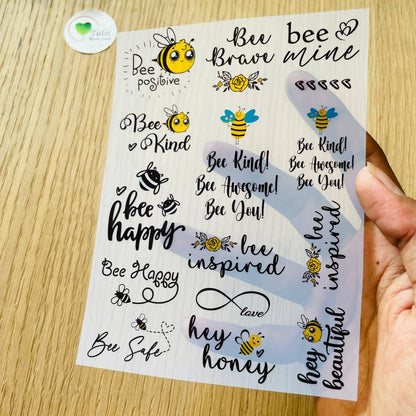 Tulsi
Bee
positive
Bee
Brave
bee
mine
Bee
Kind
Bee Kind!
Bee Awesome!
Bee You!
Bee Kind!
Bee Awesome!
Bee You!
bee
happy
bee
inspired
bee
inspired
Bee Happy
love
Bee Safe
hey
honey
hey
beautiful